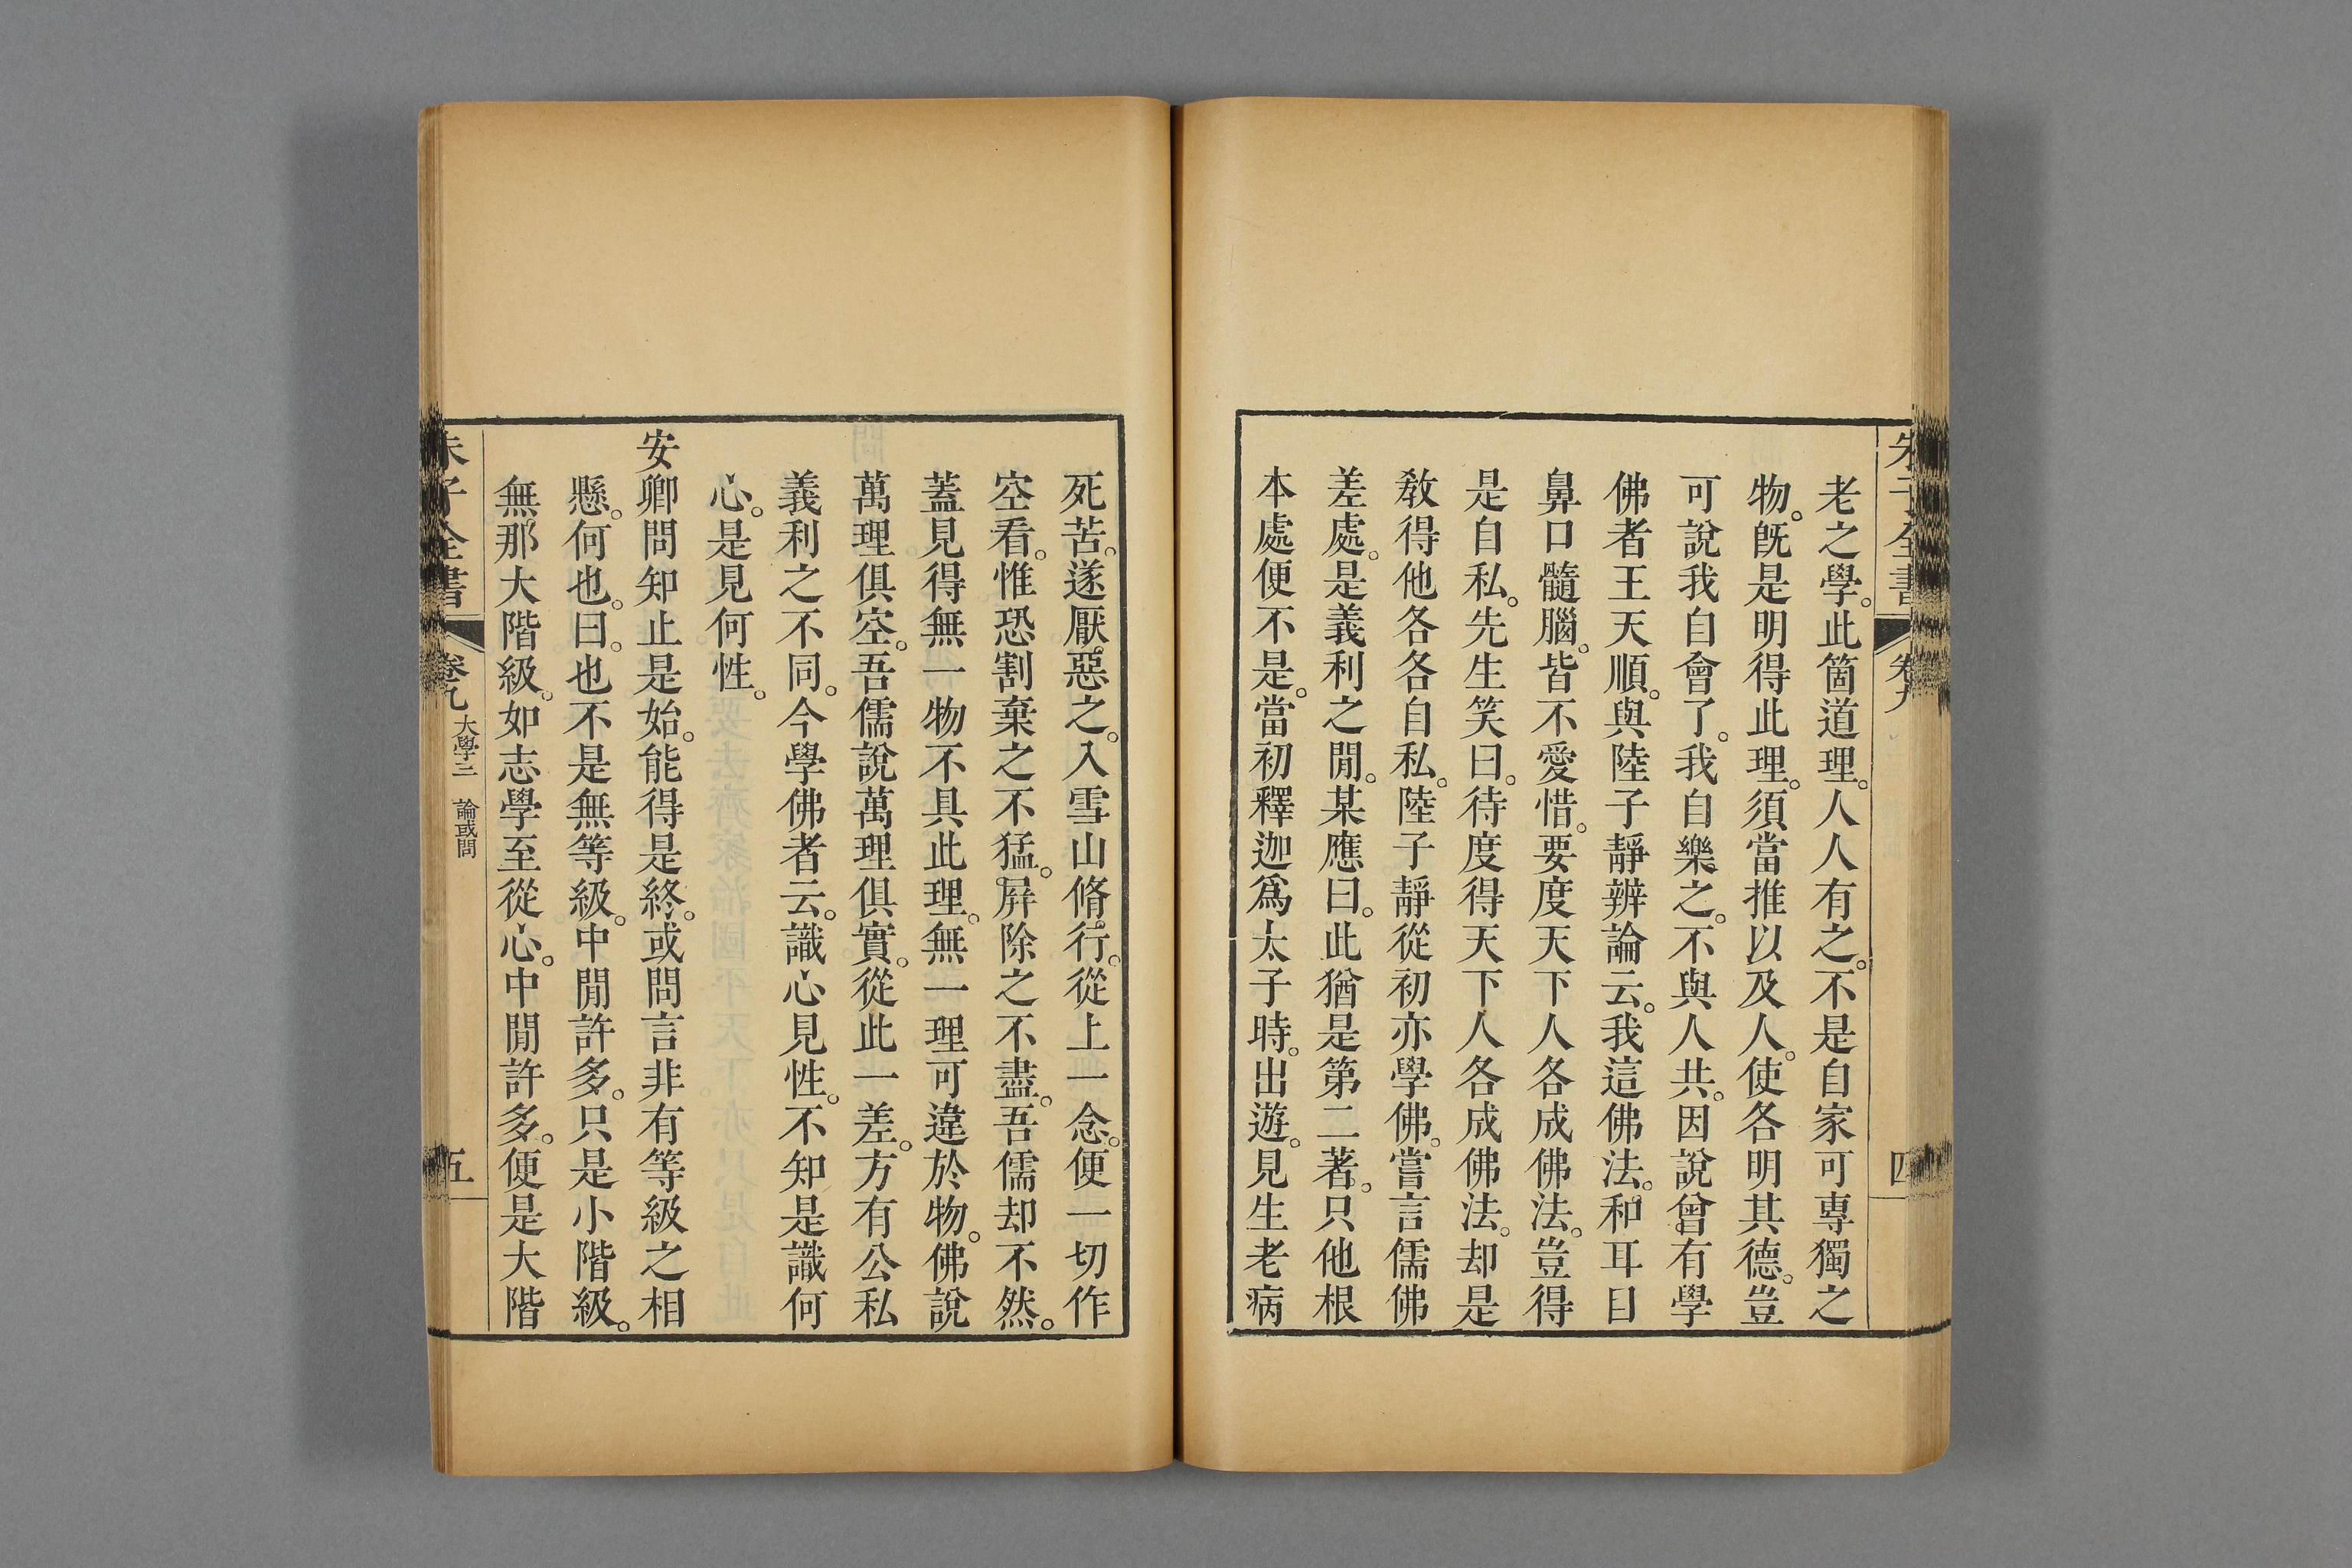 朱子全書 卷九 四
老之學。此箇道理。人人有之。不是自家可專獨之
物。旣是明得此理。須當推以及人。使各明其德。豈
可說我自會了。我自樂之。不與人共。因說曾有學
佛者王天順。與陸子靜辨論云。我這佛法。和耳目
鼻口髓腦。皆不愛惜。要度天下人各成佛法。豈得
是自私。先生笑曰。待度得天下人各成佛法。却是
敎得他各各自私。陸子靜從初亦學佛。嘗言儒佛
差處。是義利之閒。某應曰。此猶是第二著。只他根
本處便不是。當初釋迦爲太子時。出遊。見生老病
死苦。遂厭惡之。入雪山脩行。從上一念。便一切作
空看。惟恐割棄之不猛。屛除之不盡。吾儒却不然。
蓋見得無一物不具此理。無一理可違於物。佛說
萬理俱空。吾儒說萬理俱實。從此一差。方有公私
義利之不同。今學佛者云。識心見性。不知是識何
心。是見何性。
安卿問知止是始。能得是終。或問言非有等級之相
懸。何也。曰。也不是無等級。中閒許多。只是小階級。
無那大階級。如志學至從心。中閒許多。便是大階
朱子全書 卷九 大學三 論或問 五